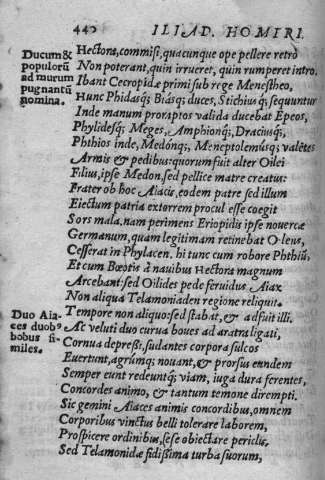 440 ILIAD. HOMIRI.
Ducum &
populorũ
ad murum
pugnantũ
nomina.
Hectora, commisi, quacunque ope pellere retrò
Non poterant, quin irrueret, quin rumperet intro.
Ibant Cecropidæ primi sub rege Menestheo,
Hunc Phidasq; Biásq; duces, Stichius q; sequuntur
Inde manum proraptos valida ducebat Epeos,
Phylidesq; Meges, Amphionq;, Draciusq;,
Phthios inde, Medonq;, Meneptolemusq; valẽtes
Armis & pedibus: quorum fuit alter Oilei
Filius, ipse Medon, sed pellice matre creatus:
Frater ob hoc Aiacis, eodem patre sed illum
Eiectum patria extorrem procul esse coegit
Sors mala, nam perimens Eriopidis ipse novercæ
Germanum, quam legitimam retinebat O leus,
Cesserat in Phylacen. hi tunc cum robore Phthiũ,
Et cum Bœotis à navibus Hectora magnum
Arcebant: sed Oilides pede fervidus Aiax
Non aliqua Telamoniaden regione reliquit.
Duo Aia-
ces duob9
bobus si-
miles.
Tempore non aliquo: sed stabat, & adfuit illi.
Ac veluti duo curva boves ad aratra ligati,
Cornua depreßi, sudantes corpora sulcos
Evertunt, agrumq; novant, & prorsus eundem
Semper eunt redeuntq; viam, iuga dura ferentes,
Concordes animo, & tantum temone dirempti.
Sic gemini Aiaces animis concordibus, omnem
Corporibus vinctus belli tolerare laborem,
Prospicere ordinibus, sese obiectare periclis.
Sed Telamonidæ fidißima turba suorum,